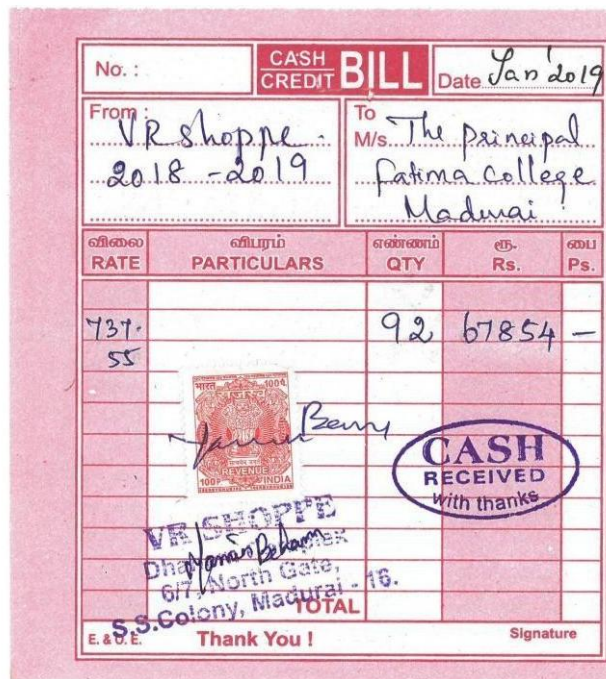 No. :
CASH
CREDIT BILL
Date Jan' 2019
From :
VR Shoppe.
2018 - 2019
To
M/s. The Principal
Fatima College
Madurai
விலை விபரம் எண்ணம் ரூ. பை
RATE PARTICULARS QTY Rs. Ps.
737.
55
92 67854 -
भारत 100 पै.
सत्यमेव जयते
REVENUE
100P INDIA
CASH
RECEIVED
with thanks
VR SHOPPE
6/7, North Gate,
S.S.Colony, Madurai - 16.
TOTAL
E. & O. E. Thank You ! Signature